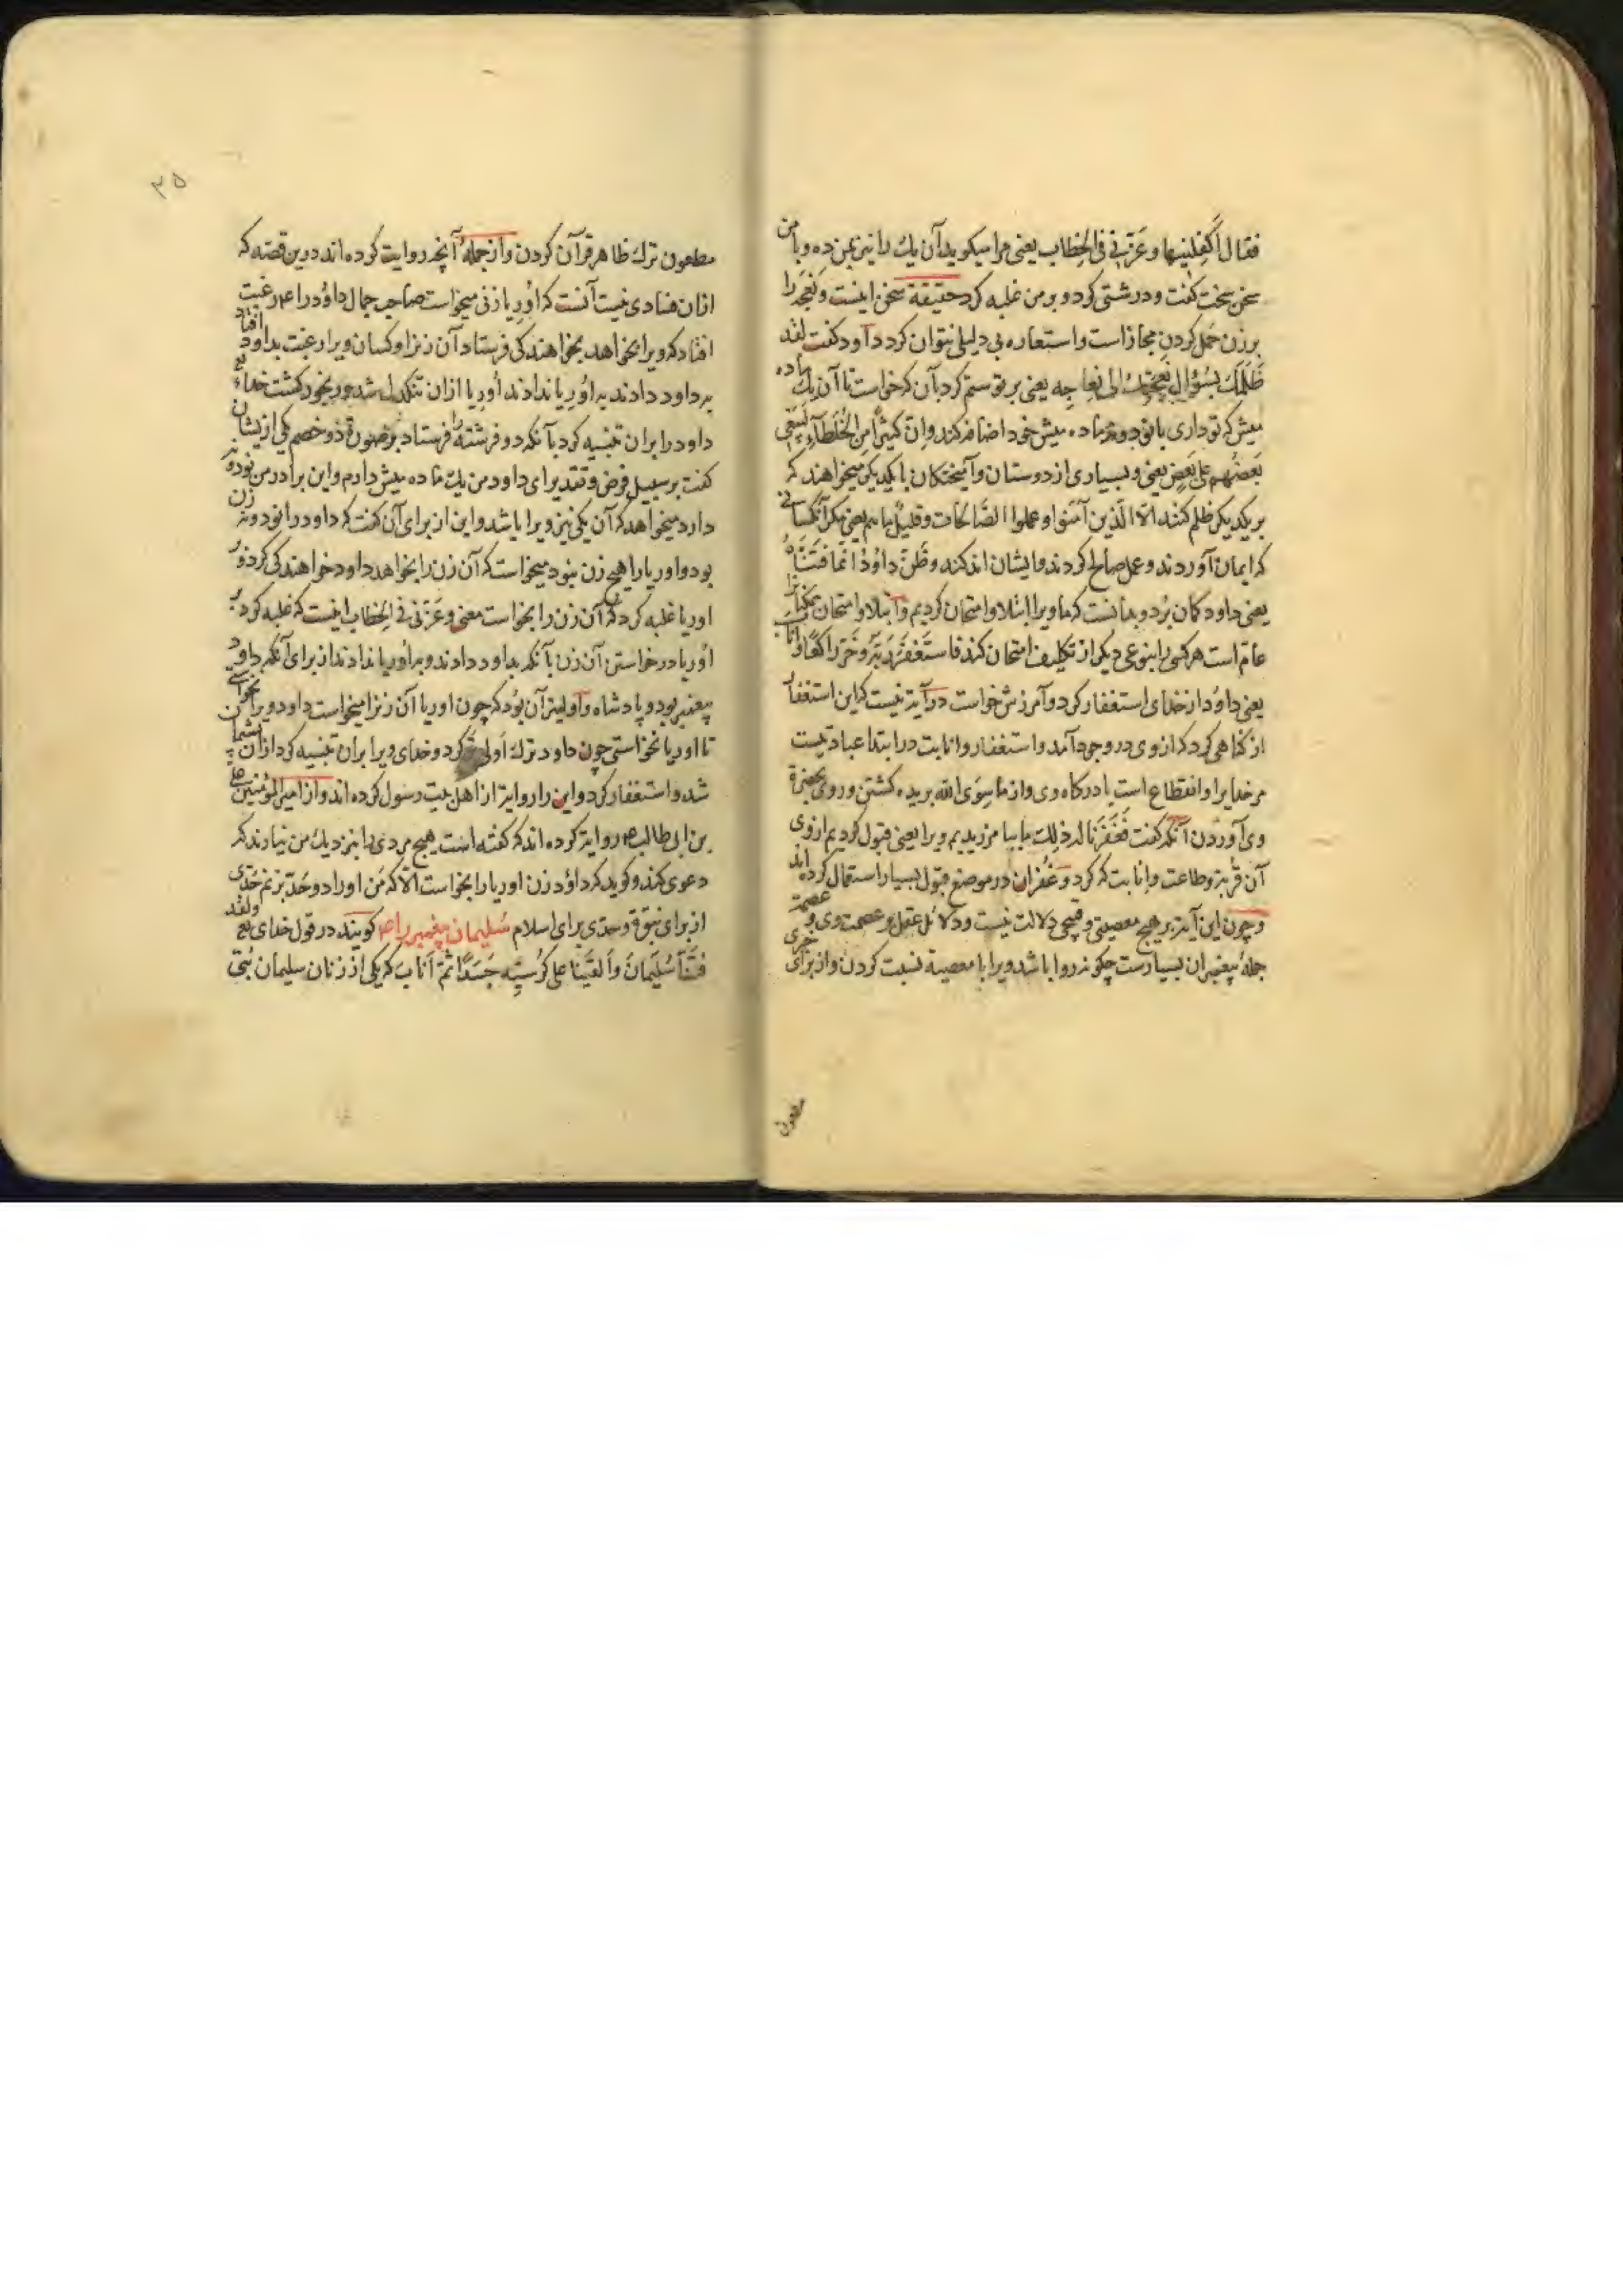 فقال اَکفِلنیها وعَزَّنی فی الخِطاب یعنی مرا میکوید آن یك را نیز بمن ده وبا من
سخن سخت کفت ودرشتی کرد وبر من غلبه کرد حقیقة سخن اینست ونعجه را
بر زن حَمل کردن مجازاست واستعاره بی دلیلی نتوان کرد داود کفت لقد
ظَلَمَكَ بسُؤالِ نَعجَتِكَ الی نِعاجِه یعنی بر تو ستم کرد بآن که خواست تا آن یك ماده
میش که تو داری با نود ونه ماده میش خود اضافه کند وانّ کثیرًا مِنَ الخُلَطآءِ لَیَبغی
بَعضُهم علی بَعضٍ یعنی وبسیاری از دوستان وآمیختکان با یکدیکر میخواهند که
بر یکدیکر ظلم کنند الّا الّذین آمَنوا وعملوا الصّالحات وقلیلٌ ما هم یعنی مکر آنکسانی
که ایمان آوردند وعمل صالح کردند وایشان اندکند وظَنَّ داوُدُ انّما فَتَنّاهُ
یعنی داود کمان بُرد وبدانست که ما ویرا ابتلا وامتحان کردیم وابتلا وامتحان
عام است هر کسی را بنوعی دیکر از تکلیف امتحان کند فاستَغفَرَ رَبَّه وخَرّ راکعًا واناب
یعنی داوُد از خدای استغفار کرد وآمرزش خواست در آیة نیست که این استغفار
از کناهی کرد که از وی در وجود آمد واستغفار وانابت در ابتدا عبادتیست
مر خدایرا وانقطاع است با درکاه وی واز ما سِوَی الله بریده کشتن وروی بحضرة
وی آوردن آنکه کفت فَغَفَرنا له ذلِك ما بیامرزیدیم ویرا یعنی قبول کردیم از وی
آن قربة وطاعت وانابت که کرد وغُفران در موضع قبول بسیار استعمال کرده اند
وچون این آیة بر هیچ معصیتی وقبحی دلالت نیست ودلائل عقل بر عصمت وی و عصمة
جملهٔ پیغمبران بسیارست چکونه روا باشد ویرا با معصیة نسبت کردن واز برای
مطعون
۳۵
مطعون ترك ظاهر قرآن کردن واز جملهٔ آنچه روایت کرده اند درین قصّه که
ازان فسادی نیست آنست که اُورِیا زنی میخواست صاحب جمال داوُد را عم رغبت
افتاد که ویرا بخواهد بخواهندکی فرستاد آن زنرا وکسان ویرا رغبت بداود افتاد
به داود دادند به اُورِیا ندادند اُورِیا ازان تنکدل شد ورنجور کشت خدای تع
داود را بران تنبیه کرد بآنکه دو فرشته را فرستاد بر صورة دو خصم یکی ازیشان
کفت بر سبیل فرض وتقدیر ای داود من یك ماده میش دارم واین برادر من نود ونه
دارد میخواهد که آن یکی نیز ویرا باشد واین از برای آن کفت که داود را نود ونه زن
بود واوریا را هیچ زن نبود میخواست که آن زن را بخواهد داود خواهندکی کرد وبر
اوریا غلبه کرد که آن زن را بخواست معنی وعَزَّنی فی الخِطاب اینست که غلبه کرد بر
اُوریا در خواستن آن زن بآنکه بداود دادند وبه اُوریا ندادند از برای آنکه داود
پیغمبر بود وپادشاه واولیتر آن بُود که چون اوریا آن زنرا میخواست داود ویرا نخواستی
تا اوریا نخواستی چون داود ترك اَولی کرد وخدای ویرا بران تنبیه کرد ازان پشیمان
شد واستغفار کرد واین را روایة از اهل بیت رسول کرده اند واز امیر المؤمنین علی
بن ابی طالب عم روایة کرده اند که کفته است هیچ مردی را بنزدیك من نیاورند که
دعوی کند وکوید که داوُد زن اوریا را بخواست الّا که مَن اورا دو حَدّ بزنم حَدّی
از برای نبوّة وحدّی برای اسلام سُلیمان پیغمبر را عم کویند در قول خدای تع ولقد
فَتَنّا سُلَیمانَ واَلقَینا علی کُرسیِّه جَسَدًا ثمّ اَنابَ که یکی از زنان سلیمان بُتی